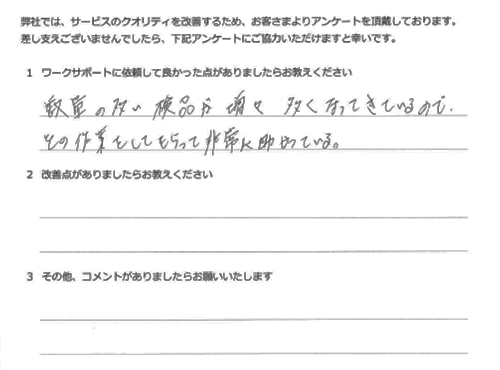 弊社では、サービスのクオリティを改善するため、お客さまよりアンケートを頂戴しております。
差し支えございませんでしたら、下記アンケートにご協力いただけますと幸いです。
1 ワークサポートに依頼して良かった点がありましたらお教えください
数量の多い検品が増々多くなってきているので、
その作業をしてもらって非常に助かっている。
2 改善点がありましたらお教えください
3 その他、コメントがありましたらお願いいたします